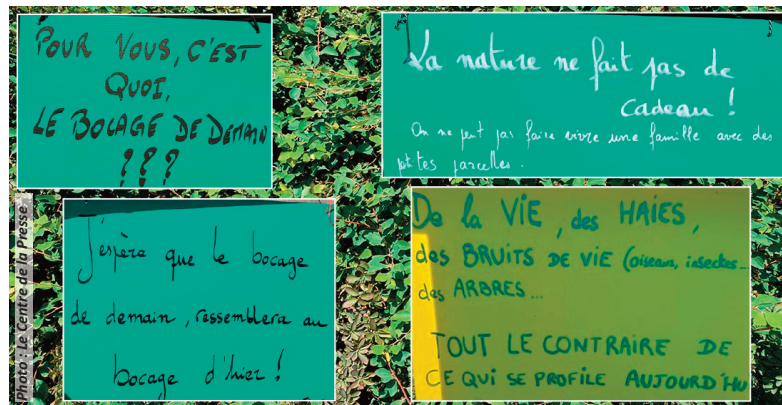 POUR VOUS, C'EST
QUOI,
LE BOCAGE DE DEMAIN
???
La nature ne fait pas de
cadeau !
On ne peut pas faire vivre une famille avec des
petites parcelles.
J'espère que le bocage
de demain, ressemblera au
bocage d'hier !
De la VIE, des HAIES,
des BRUITS DE VIE (oiseaux, insectes...
des ARBRES...
TOUT LE CONTRAIRE DE
CE QUI SE PROFILE AUJOURD'HU
Photo : Le Centre de la Presse